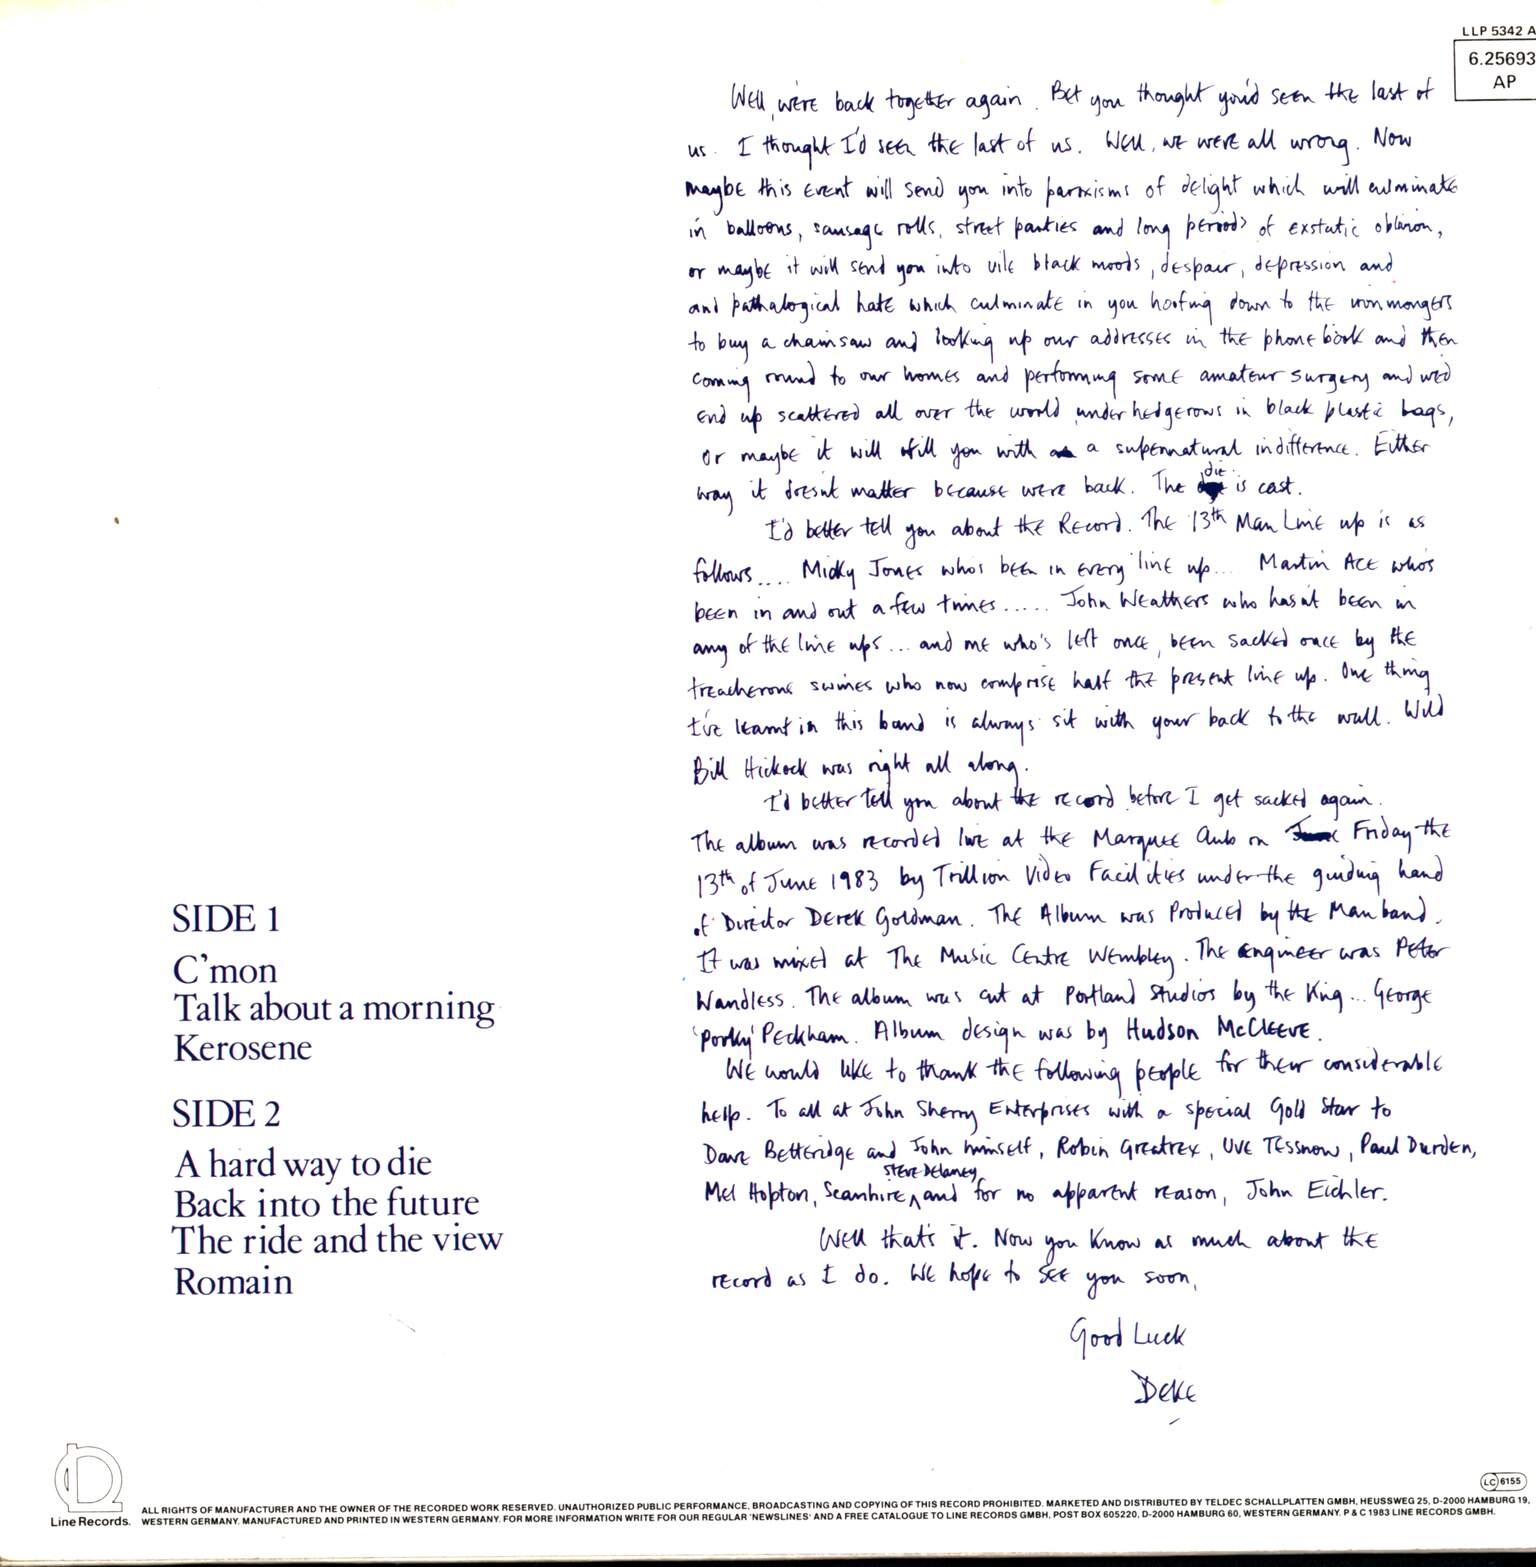 LLP 5342 A
6.25693
AP
Well, we're back together again. Bet you thought you'd seen the last of
us. I thought I'd seen the last of us. Well, we were all wrong. Now
maybe this event will send you into paroxisms of delight which will culminate
in balloons, sausage rolls, street parties and long periods of exstatic oblivion,
or maybe it will send you into vile black moods, despair, depression and
and pathalogical hate which culminate in you hoofing down to the ironmongers
to buy a chainsaw and looking up our addresses in the phone book and then
coming round to our homes and performing some amateur surgery and we'd
end up scattered all over the world under hedgerows in black plastic bags,
or maybe it will fill you with a supernatural indifference. Either
way it doesn't matter because were back. The die is cast.
I'd better tell you about the Record. The 13th Man Line up is as
follows.... Micky Jones who's been in every line up... Martin Ace who's
been in and out a few times..... John Weathers who hasn't been in
any of the line ups... and me who's left once, been sacked once by the
treacherous swines who now comprise half the present line up. One thing
I've learnt in this band is always sit with your back to the wall. Wild
Bill Hickock was right all along.
I'd better tell you about the record before I get sacked again.
The album was recorded live at the Marquee Club on Friday the
13th of June 1983 by Trillion Video Facilities under the guiding hand
of Director Derek Goldman. The Album was Produced by the Man band.
It was mixed at The Music Centre Wembley. The engineer was Peter
Wandless. The album was cut at Portland Studios by the King... George
'Porky' Peckham. Album design was by Hudson McCleeve.
We would like to thank the following people for their considerable
help. To all at John Sherry Enterprises with a special Gold Star to
Dave Betteridge and John himself, Robin Greatrex, Uve Tessnow, Paul Durden,
Mel Hopton, Scanhire, Steve Delaney, and for no apparent reason, John Eichler.
Well that's it. Now you know as much about the
record as I do. We hope to see you soon,
Good Luck
Deke
SIDE 1
C'mon
Talk about a morning
Kerosene
SIDE 2
A hard way to die
Back into the future
The ride and the view
Romain
LC 6155
Line Records.
ALL RIGHTS OF MANUFACTURER AND THE OWNER OF THE RECORDED WORK RESERVED. UNAUTHORIZED PUBLIC PERFORMANCE, BROADCASTING AND COPYING OF THIS RECORD PROHIBITED. MARKETED AND DISTRIBUTED BY TELDEC SCHALLPLATTEN GMBH, HEUSSWEG 25, D-2000 HAMBURG 19,
WESTERN GERMANY. MANUFACTURED AND PRINTED IN WESTERN GERMANY. FOR MORE INFORMATION WRITE FOR OUR REGULAR 'NEWSLINES' AND A FREE CATALOGUE TO LINE RECORDS GMBH, POST BOX 605220, D-2000 HAMBURG 60, WESTERN GERMANY. P & C 1983 LINE RECORDS GMBH.